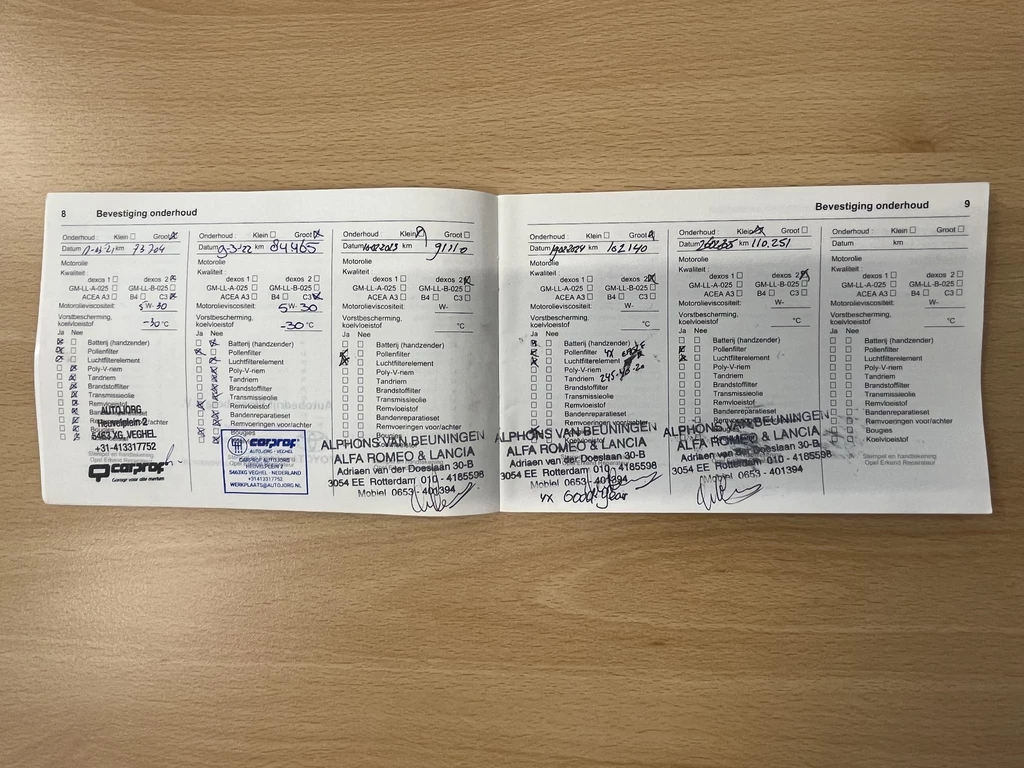 8 Bevestiging onderhoud
Onderhoud : Klein Groot
Datum km 73704
Motorolie
Kwaliteit :
dexos 1 dexos 2
GM-LL-A-025 GM-LL-B-025
ACEA A3 B4 C3
Motorolieviscositeit: 5 W- 30
Vorstbescherming,
koelvloeistof -30 °C
Ja Nee
Batterij (handzender)
Pollenfilter
Luchtfilterelement
Poly-V-riem
Tandriem
Brandstoffilter
Transmissieolie
Remvloeistof
AUTOJORG
Heuvelplein 2
5463 XG VEGHEL
+31-413317752
carprof
Garage voor alle merken
Onderhoud : Klein Groot
Datum 9-3-22 km 84465
Motorolie
Kwaliteit :
dexos 1 dexos 2
GM-LL-A-025 GM-LL-B-025
ACEA A3 B4 C3
Motorolieviscositeit: 5 W- 30
Vorstbescherming,
koelvloeistof -30 °C
Ja Nee
Batterij (handzender)
Pollenfilter
Luchtfilterelement
Poly-V-riem
Tandriem
Brandstoffilter
Transmissieolie
Remvloeistof
Bandenreparatieset
Remvoeren voor/achter
Bougies
carprof
AUTOJORG - VEGHEL
CARPROF AUTOJORG
HEUVELPLEIN 2
5463XG VEGHEL - NEDERLAND
+31413317752
WERKPLAATS@AUTOJORG.NL
Onderhoud : Klein Groot
Datum km 91110
Motorolie
Kwaliteit :
dexos 1 dexos 2
GM-LL-A-025 GM-LL-B-025
ACEA A3 B4 C3
Motorolieviscositeit: W-
Vorstbescherming,
koelvloeistof °C
Ja Nee
Batterij (handzender)
Pollenfilter
Luchtfilterelement
Poly-V-riem
Tandriem
Brandstoffilter
Transmissieolie
Remvloeistof
Bandenreparatieset
Remvoeren voor/achter
ALPHONS VAN BEUNINGEN
ALFA ROMEO & LANCIA
Adriaen van der Doeslaan 30-B
3054 EE Rotterdam 010 - 4185598
Mobiel 0653 - 401394
Bevestiging onderhoud 9
Onderhoud : Klein Groot
Datum km 102140
Motorolie
Kwaliteit :
dexos 1 dexos 2
GM-LL-A-025 GM-LL-B-025
ACEA A3 B4 C3
Motorolieviscositeit: W-
Vorstbescherming,
koelvloeistof °C
Ja Nee
Batterij (handzender)
Pollenfilter 4x
Luchtfilterelement
Poly-V-riem
Tandriem
Brandstoffilter
Transmissieolie
Remvloeistof
Bandenreparatieset
Remvoeren voor/achter
ALPHONS VAN BEUNINGEN
ALFA ROMEO & LANCIA
Adriaen van der Doeslaan 30-B
3054 EE Rotterdam 010 - 4185598
Mobiel 0653 - 401394
4x Goodyear
Onderhoud : Klein Groot
Datum km 110.251
Motorolie
Kwaliteit :
dexos 1 dexos 2
GM-LL-A-025 GM-LL-B-025
ACEA A3 B4 C3
Motorolieviscositeit: W-
Vorstbescherming,
koelvloeistof °C
Ja Nee
Batterij (handzender)
Pollenfilter
Luchtfilterelement
Poly-V-riem
Tandriem
Brandstoffilter
Transmissieolie
Remvloeistof
Bandenreparatieset
Remvoeren voor/achter
ALPHONS VAN BEUNINGEN
ALFA ROMEO & LANCIA
Adriaen van der Doeslaan 30-B
3054 EE Rotterdam 010 - 4185598
Mobiel 0653 - 401394
Onderhoud : Klein Groot
Datum km
Motorolie
Kwaliteit :
dexos 1 dexos 2
GM-LL-A-025 GM-LL-B-025
ACEA A3 B4 C3
Motorolieviscositeit: W-
Vorstbescherming,
koelvloeistof °C
Ja Nee
Batterij (handzender)
Pollenfilter
Luchtfilterelement
Poly-V-riem
Tandriem
Brandstoffilter
Transmissieolie
Remvloeistof
Bandenreparatieset
Remvoeren voor/achter
Bougies
Koelvloeistof
Stempel en handtekening
Opel Erkend Reparateur